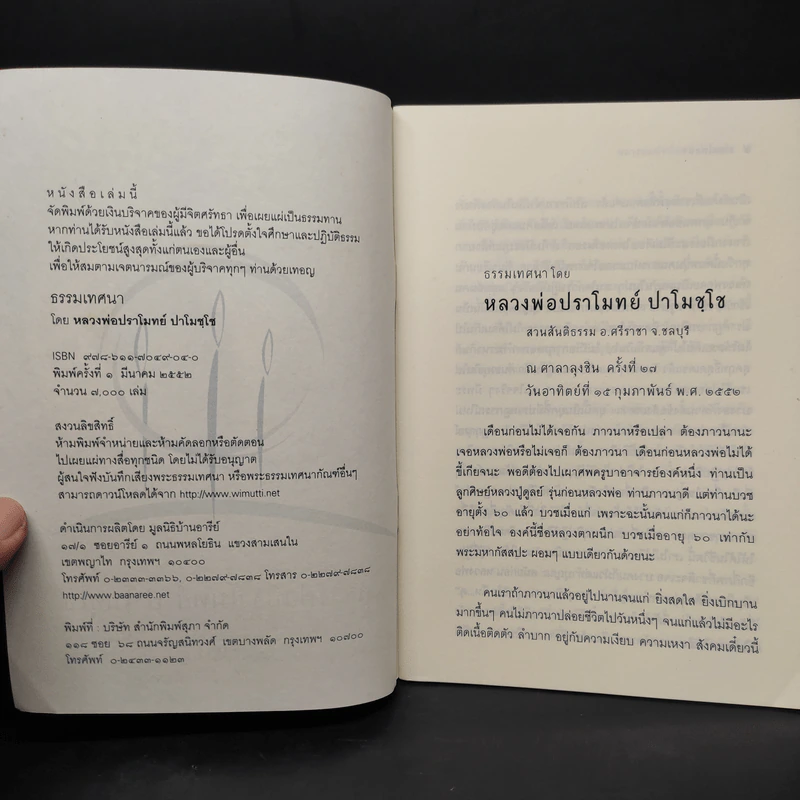 หนังสือเล่มนี้
จัดพิมพ์ด้วยเงินบริจาคของผู้มีจิตศรัทธา เพื่อเผยแผ่เป็นธรรมทาน
หากท่านได้รับหนังสือเล่มนี้แล้ว ขอได้โปรดตั้งใจศึกษาและปฏิบัติธรรม
ให้เกิดประโยชน์สูงสุดทั้งแก่ตนเองและผู้อื่น
เพื่อให้สมตามเจตนารมณ์ของผู้บริจาคทุกๆ ท่านด้วยเทอญ
ธรรมเทศนา
โดย หลวงพ่อปราโมทย์ ปาโมชฺโช
ISBN ๙๗๘-๖๑๑-๗๐๔๙-๐๔-๐
พิมพ์ครั้งที่ ๑ มีนาคม ๒๕๕๒
จำนวน ๗,๐๐๐ เล่ม
สงวนลิขสิทธิ์
ห้ามพิมพ์จำหน่ายและห้ามคัดลอกหรือตัดตอน
ไปเผยแผ่ทางสื่อทุกชนิด โดยไม่ได้รับอนุญาต
ผู้สนใจฟังบันทึกเสียงพระธรรมเทศนา หรือพระธรรมเทศนากัณฑ์อื่นๆ
สามารถดาวน์โหลดได้จาก http://www.wimutti.net
ดำเนินการผลิตโดย มูลนิธิบ้านอารีย์
๑๗/๑ ซอยอารีย์ ๑ ถนนพหลโยธิน แขวงสามเสนใน
เขตพญาไท กรุงเทพฯ ๑๐๔๐๐
โทรศัพท์ ๐-๒๓๓๓-๓๓๖๖, ๐-๒๒๗๙-๗๘๓๘ โทรสาร ๐-๒๒๗๙-๗๘๓๘
http://www.baanaree.net
พิมพ์ที่ : บริษัท สำนักพิมพ์สุภา จำกัด
๑๑๘ ซอย ๖๘ ถนนจรัญสนิทวงศ์ เขตบางพลัด กรุงเทพฯ ๑๐๗๐๐
โทรศัพท์ ๐-๒๔๓๓-๑๑๒๓
ธรรมเทศนา โดย
หลวงพ่อปราโมทย์ ปาโมชฺโช
สวนสันติธรรม อ.ศรีราชา จ.ชลบุรี
ณ ศาลาลุงชิน ครั้งที่ ๒๗
วันอาทิตย์ที่ ๑๕ กุมภาพันธ์ พ.ศ. ๒๕๕๒
เดือนก่อนไม่ได้เจอกัน ภาวนาหรือเปล่า ต้องภาวนานะ
เจอหลวงพ่อหรือไม่เจอก็ ต้องภาวนา เดือนก่อนหลวงพ่อไม่ได้
ขี้เกียจนะ พอดีต้องไปเผาศพครูบาอาจารย์องค์หนึ่ง ท่านเป็น
ลูกศิษย์หลวงปู่ดูลย์ รุ่นก่อนหลวงพ่อ ท่านภาวนาดี แต่ท่านบวช
อายุตั้ง ๖๐ แล้ว บวชเมื่อแก่ เพราะฉะนั้นคนแก่ก็ภาวนาได้นะ
อย่าท้อใจ องค์นี้ชื่อหลวงตาผนึก บวชเมื่ออายุ ๖๐ เท่ากับ
พระมหากัสสปะ ผอมๆ แบบเดียวกันด้วยนะ
คนเราถ้าภาวนาแล้วอยู่ไปนานจนแก่ ยิ่งสดใส ยิ่งเบิกบาน
มากขึ้นๆ คนไม่ภาวนาปล่อยชีวิตไปวันหนึ่งๆ จนแก่แล้วไม่มีอะไร
ติดเนื้อติดตัว ลำบาก อยู่กับความเงียบ ความเหงา สังคมเดี๋ยวนี้